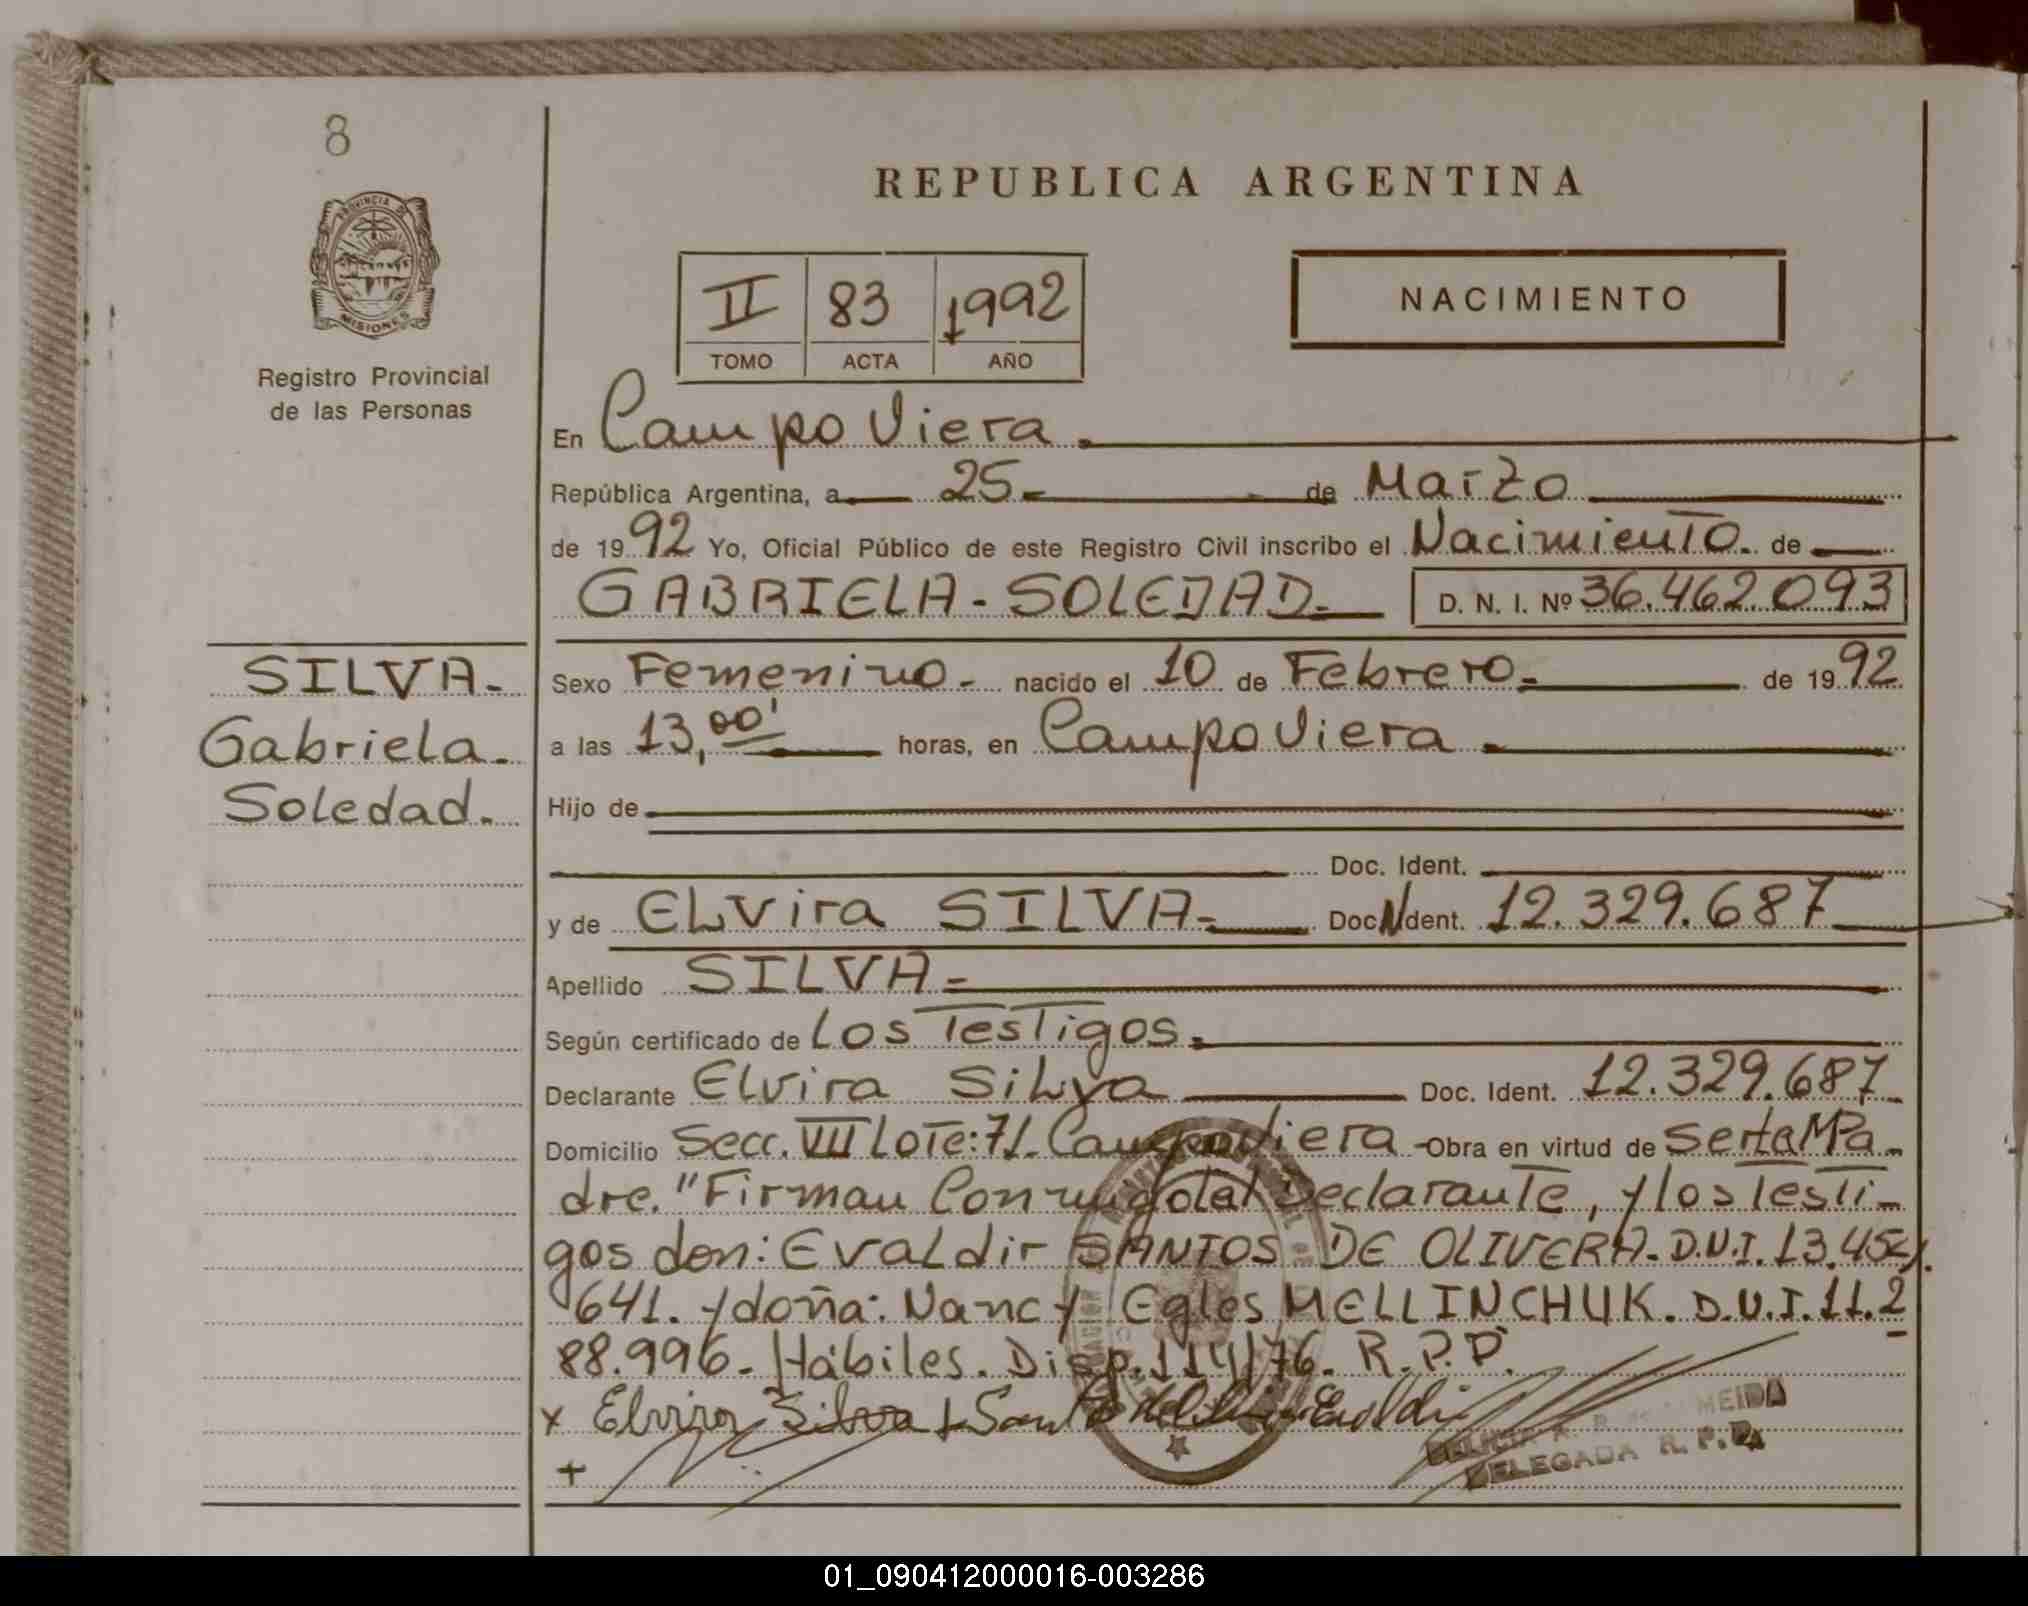 8
REPUBLICA ARGENTINA
PROVINCIA DE
MISIONES
Registro Provincial
de las Personas
II 83 1992
TOMO ACTA AÑO
NACIMIENTO
En Campo Viera.
República Argentina, a 25- de Marzo
de 1992 Yo, Oficial Público de este Registro Civil inscribo el Nacimiento. de
GABRIELA-SOLEDAD- D. N. I. Nº 36.462.093
SILVA-
Gabriela.
Soledad.
Sexo Femenino- nacido el 10 de Febrero- de 1992
a las 13,00' horas, en Campo Viera
Hijo de
Doc. Ident.
y de ELVira SILVA- Doc. Ident. 12.329.687
Apellido SILVA-
Según certificado de Los Testigos.
Declarante Elvira Silva Doc. Ident. 12.329.687
Domicilio Secc. VII Lote:71-Campo Viera-Obra en virtud de ser la Ma-
dre. "Firman Conmigo la Declarante, y los Testi-
gos don: Evaldir SANTOS DE OLIVERA-D.N.I. 13.452.
641. y doña: Nancy Egles MELLINCHUK. D.N.I. 11.2
88.996- Hábiles. Disp. 114/76- R.P.P.
x Elvira Silva +
+
MEIDA
DELEGADA R. P. P.
01_090412000016-003286